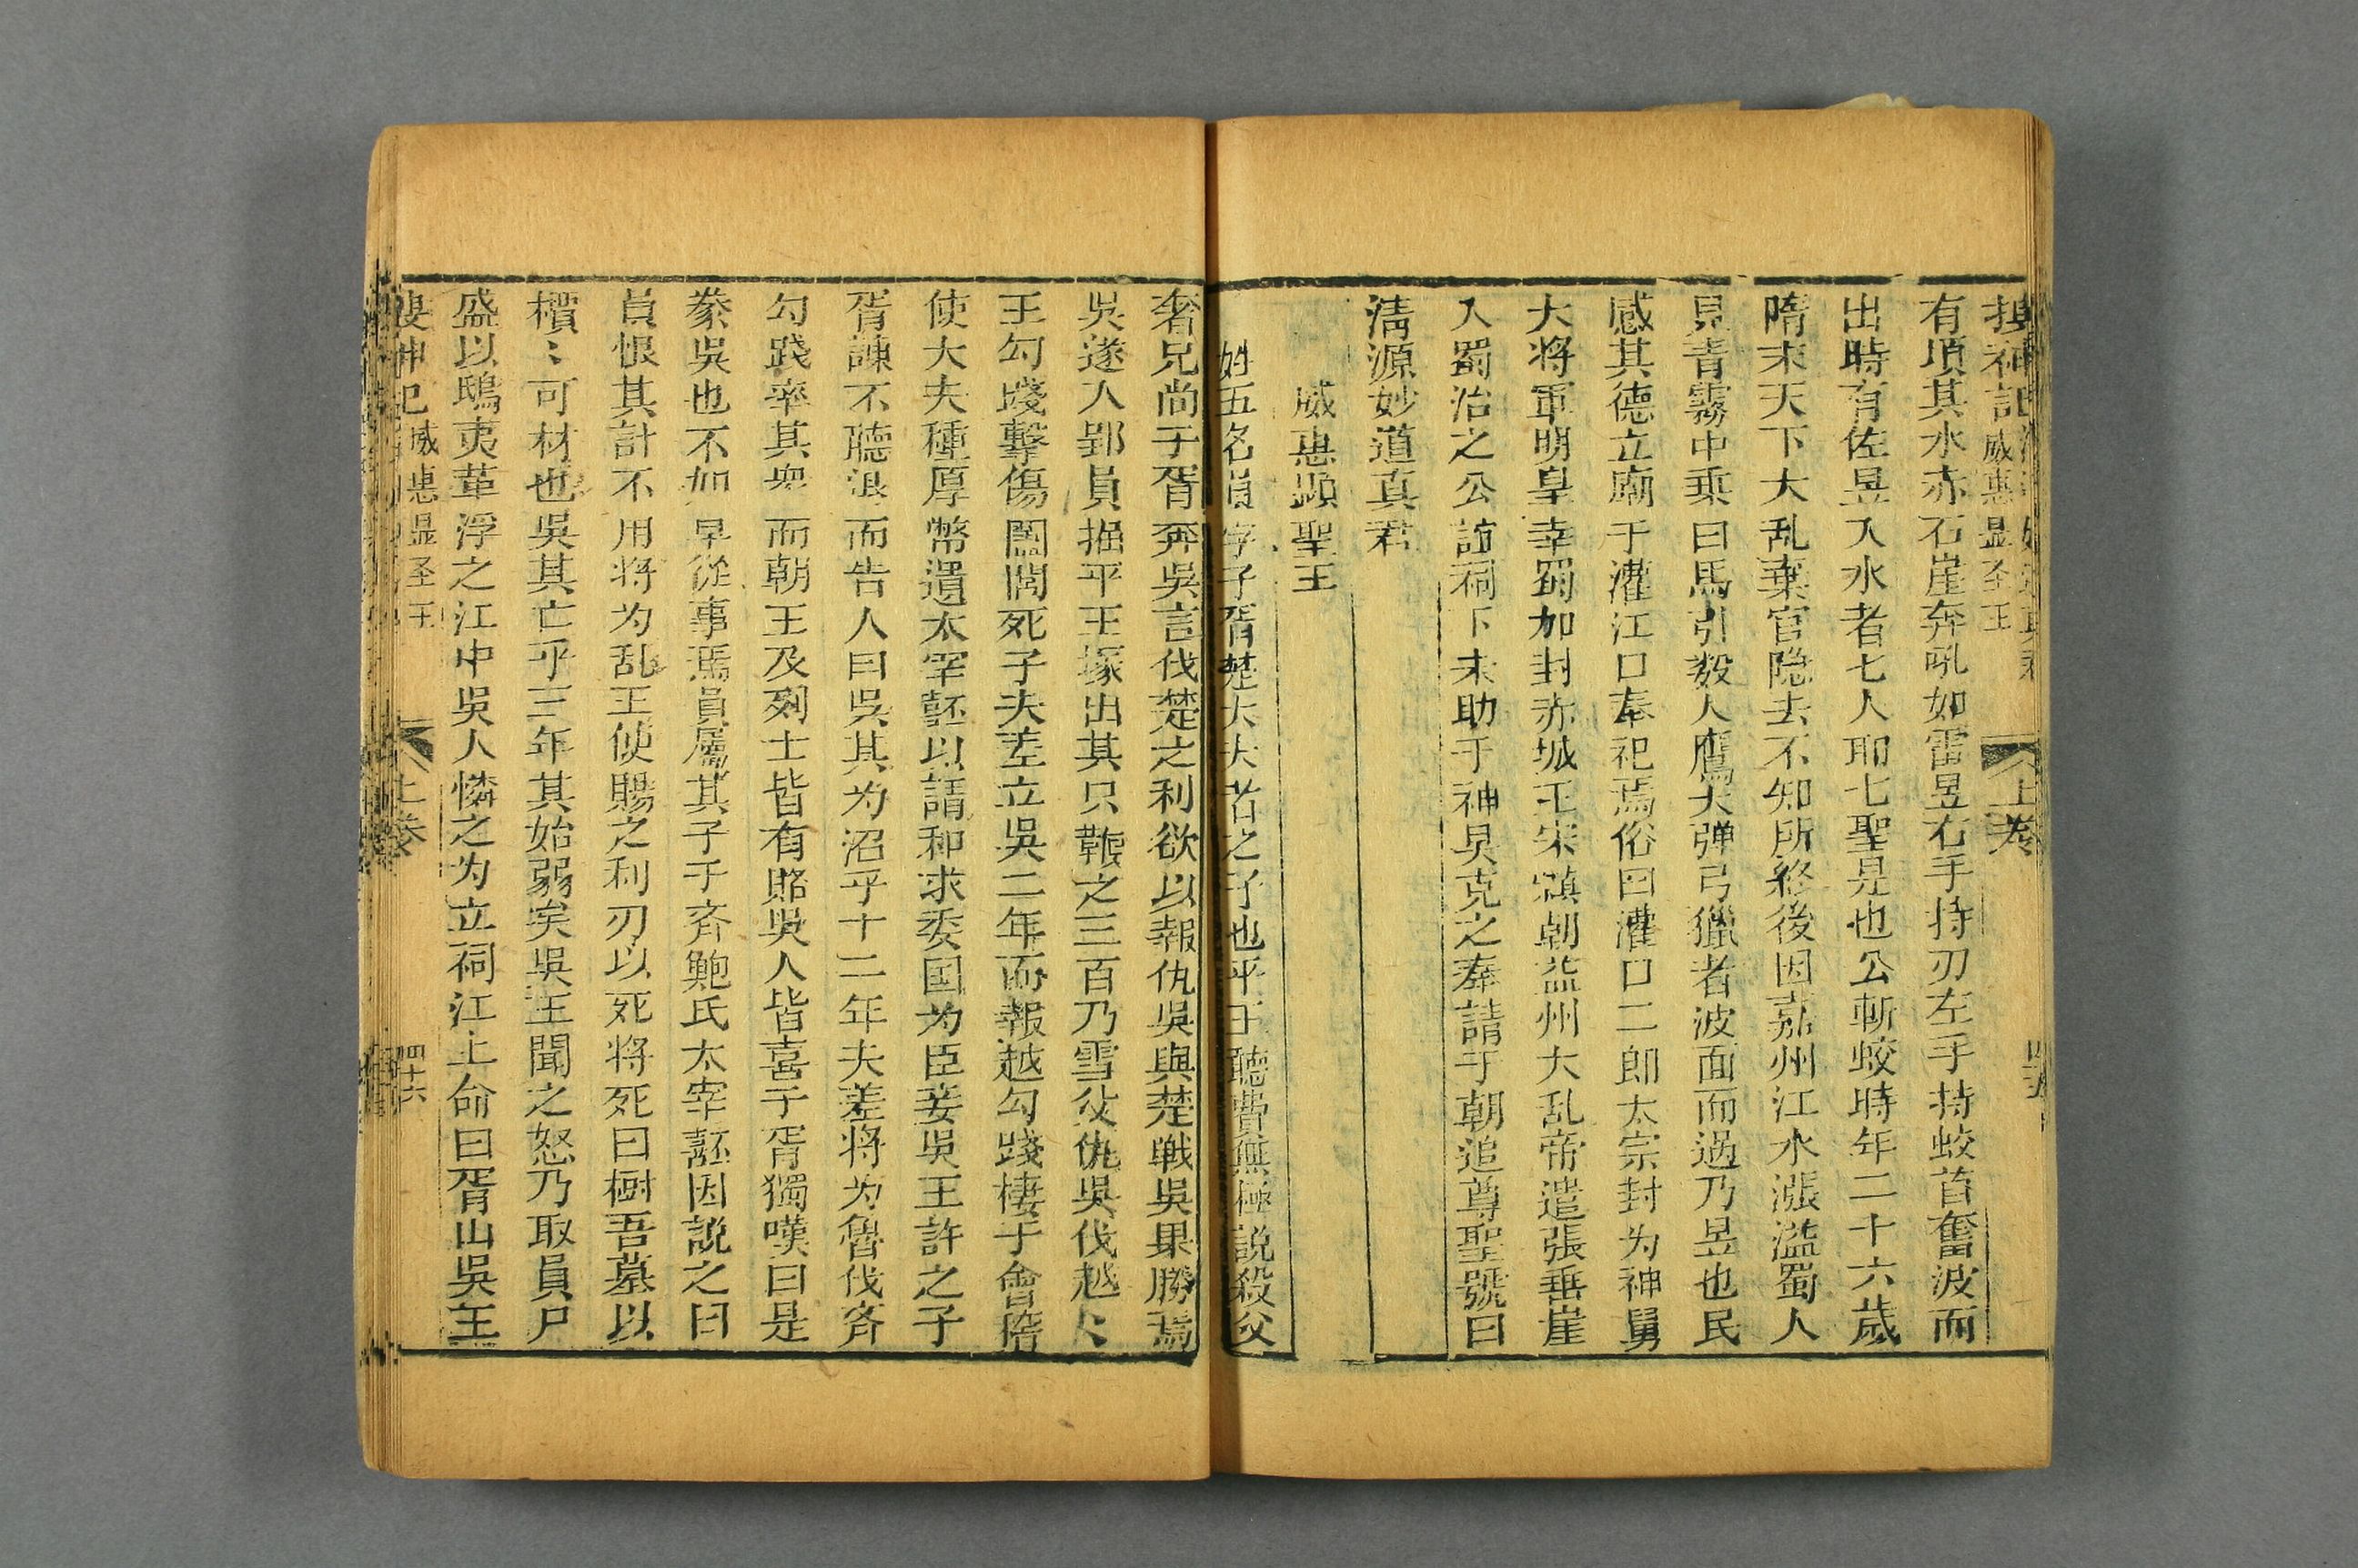 搜神記 威惠显圣王 上卷
有項其水赤石崖奔吼如雷昱右手持刃左手持蛟首奮波而
出時有佐昱入水者七人即七聖是也公斬蛟時年二十六歲
隋末天下大乱棄官隐去不知所終後因嘉州江水漲溢蜀人
見青霧中乗白馬引数人鷹犬弹弓獵者波面而過乃昱也民
感其德立廟于灌江口奉祀焉俗曰灌口二郎太宗封为神勇
大将軍明皇幸蜀加封赤城王宋真朝益州大乱帝遣張乖崖
入蜀治之公詣祠下求助于神果克之奉請于朝追尊聖號曰
清源妙道真君
威惠顯聖王
姓五名員字子胥楚大夫奢之子也平王聽費無極説殺父
奢兄尚子胥奔吳言伐楚之利欲以報仇吳與楚戰吳果勝焉
吳遂入郢員掘平王塚出其尸鞭之三百乃雪父仇吳伐越〻
王勾践擊傷闔閭死子夫差立吳二年而報越勾踐棲于會稽
使大夫種厚幣遺太宰嚭以請和求委国为臣妾吳王許之子
胥諫不聽退而告人曰吳其为沼乎十二年夫差将为魯伐齐
勾踐率其衆而朝王及列士皆有賂吳人皆喜子胥獨嘆曰是
豢吳也不如早從事焉員屬其子于齐鮑氏太宰嚭因説之曰
員恨其計不用将为乱王使賜之利刃以死将死曰樹吾墓以
檟〻可材也吳其亡乎三年其始弱矣吳王聞之怒乃取員尸
盛以鴟夷革浮之江中吳人憐之为立祠江上命曰胥山吳王
搜神记 威惠显圣王 上卷 四十六